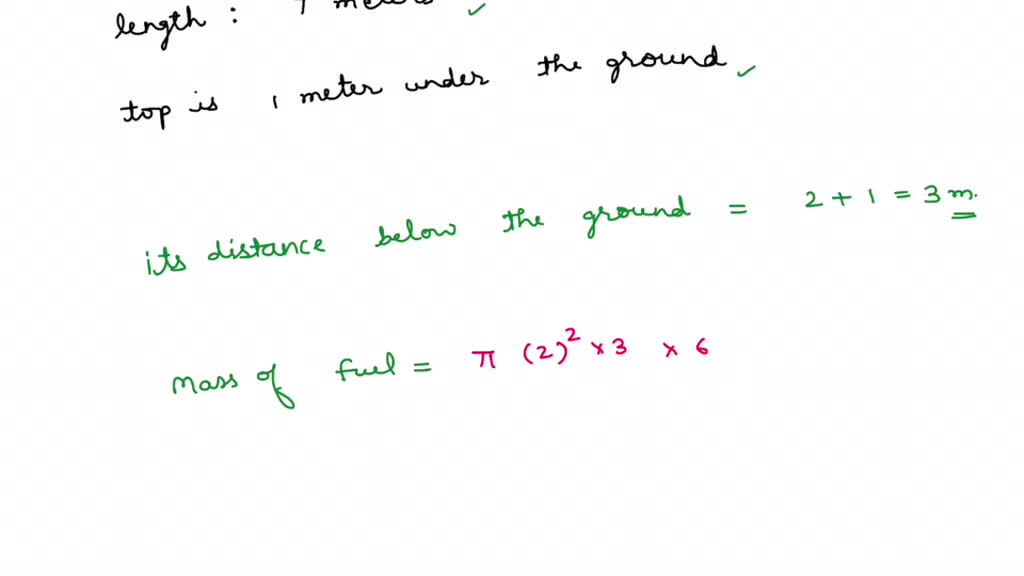 length :
top is 1 meter under the ground ✓
its distance below the ground = 2 + 1 = 3 m.
Mass of fuel = π (2)² × 3 × 6